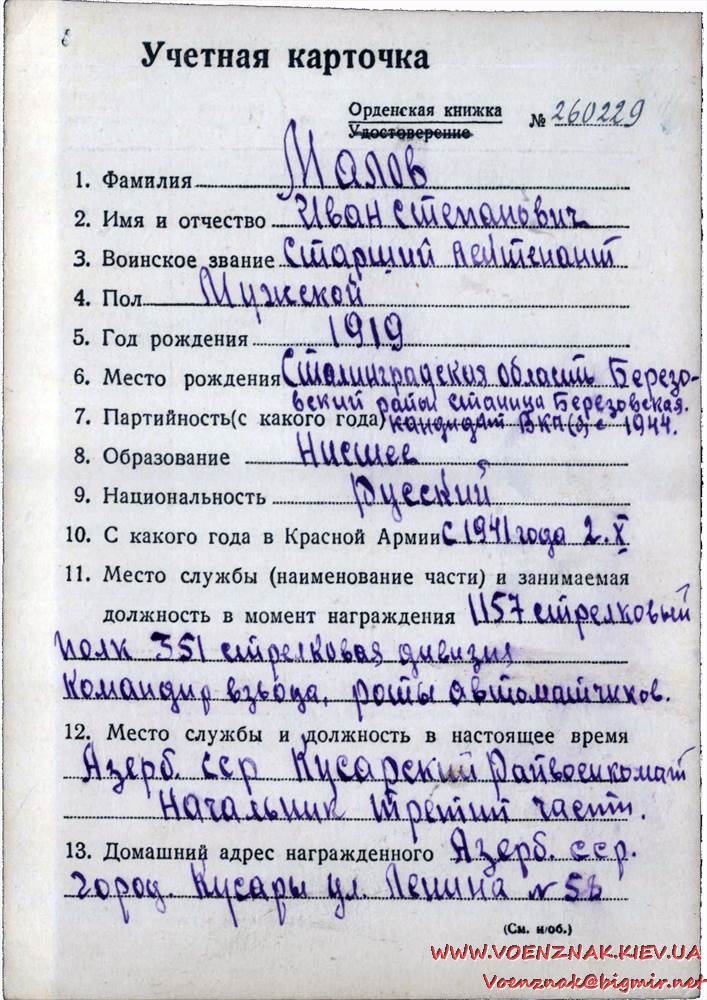 Учетная карточка
Орденская книжка
Удостоверение
№ 260229
1. Фамилия Малов
2. Имя и отчество Иван Степанович
3. Воинское звание Старший лейтенант
4. Пол Мужской
5. Год рождения 1919
6. Место рождения Сталинградская область Березо-
вский район станица Березовская.
7. Партийность(с какого года) кандидат ВКП(б) с 1944.
8. Образование Нисшее
9. Национальность Русский
10. С какого года в Красной Армии С 1941 года 2.X
11. Место службы (наименование части) и занимаемая
должность в момент награждения 1157 стрелковый
полк 351 стрелковая дивизия
командир взвода, роты автоматчиков.
12. Место службы и должность в настоящее время
Азерб. сср Кусарский Райвоенкомат
Начальник третий части.
13. Домашний адрес награжденного Азерб. сср.
город. Кусары ул. Ленина N
(См. н/об.)
WWW.VOENZNAK.KIEV.UA
Voenznak@bigmir.net